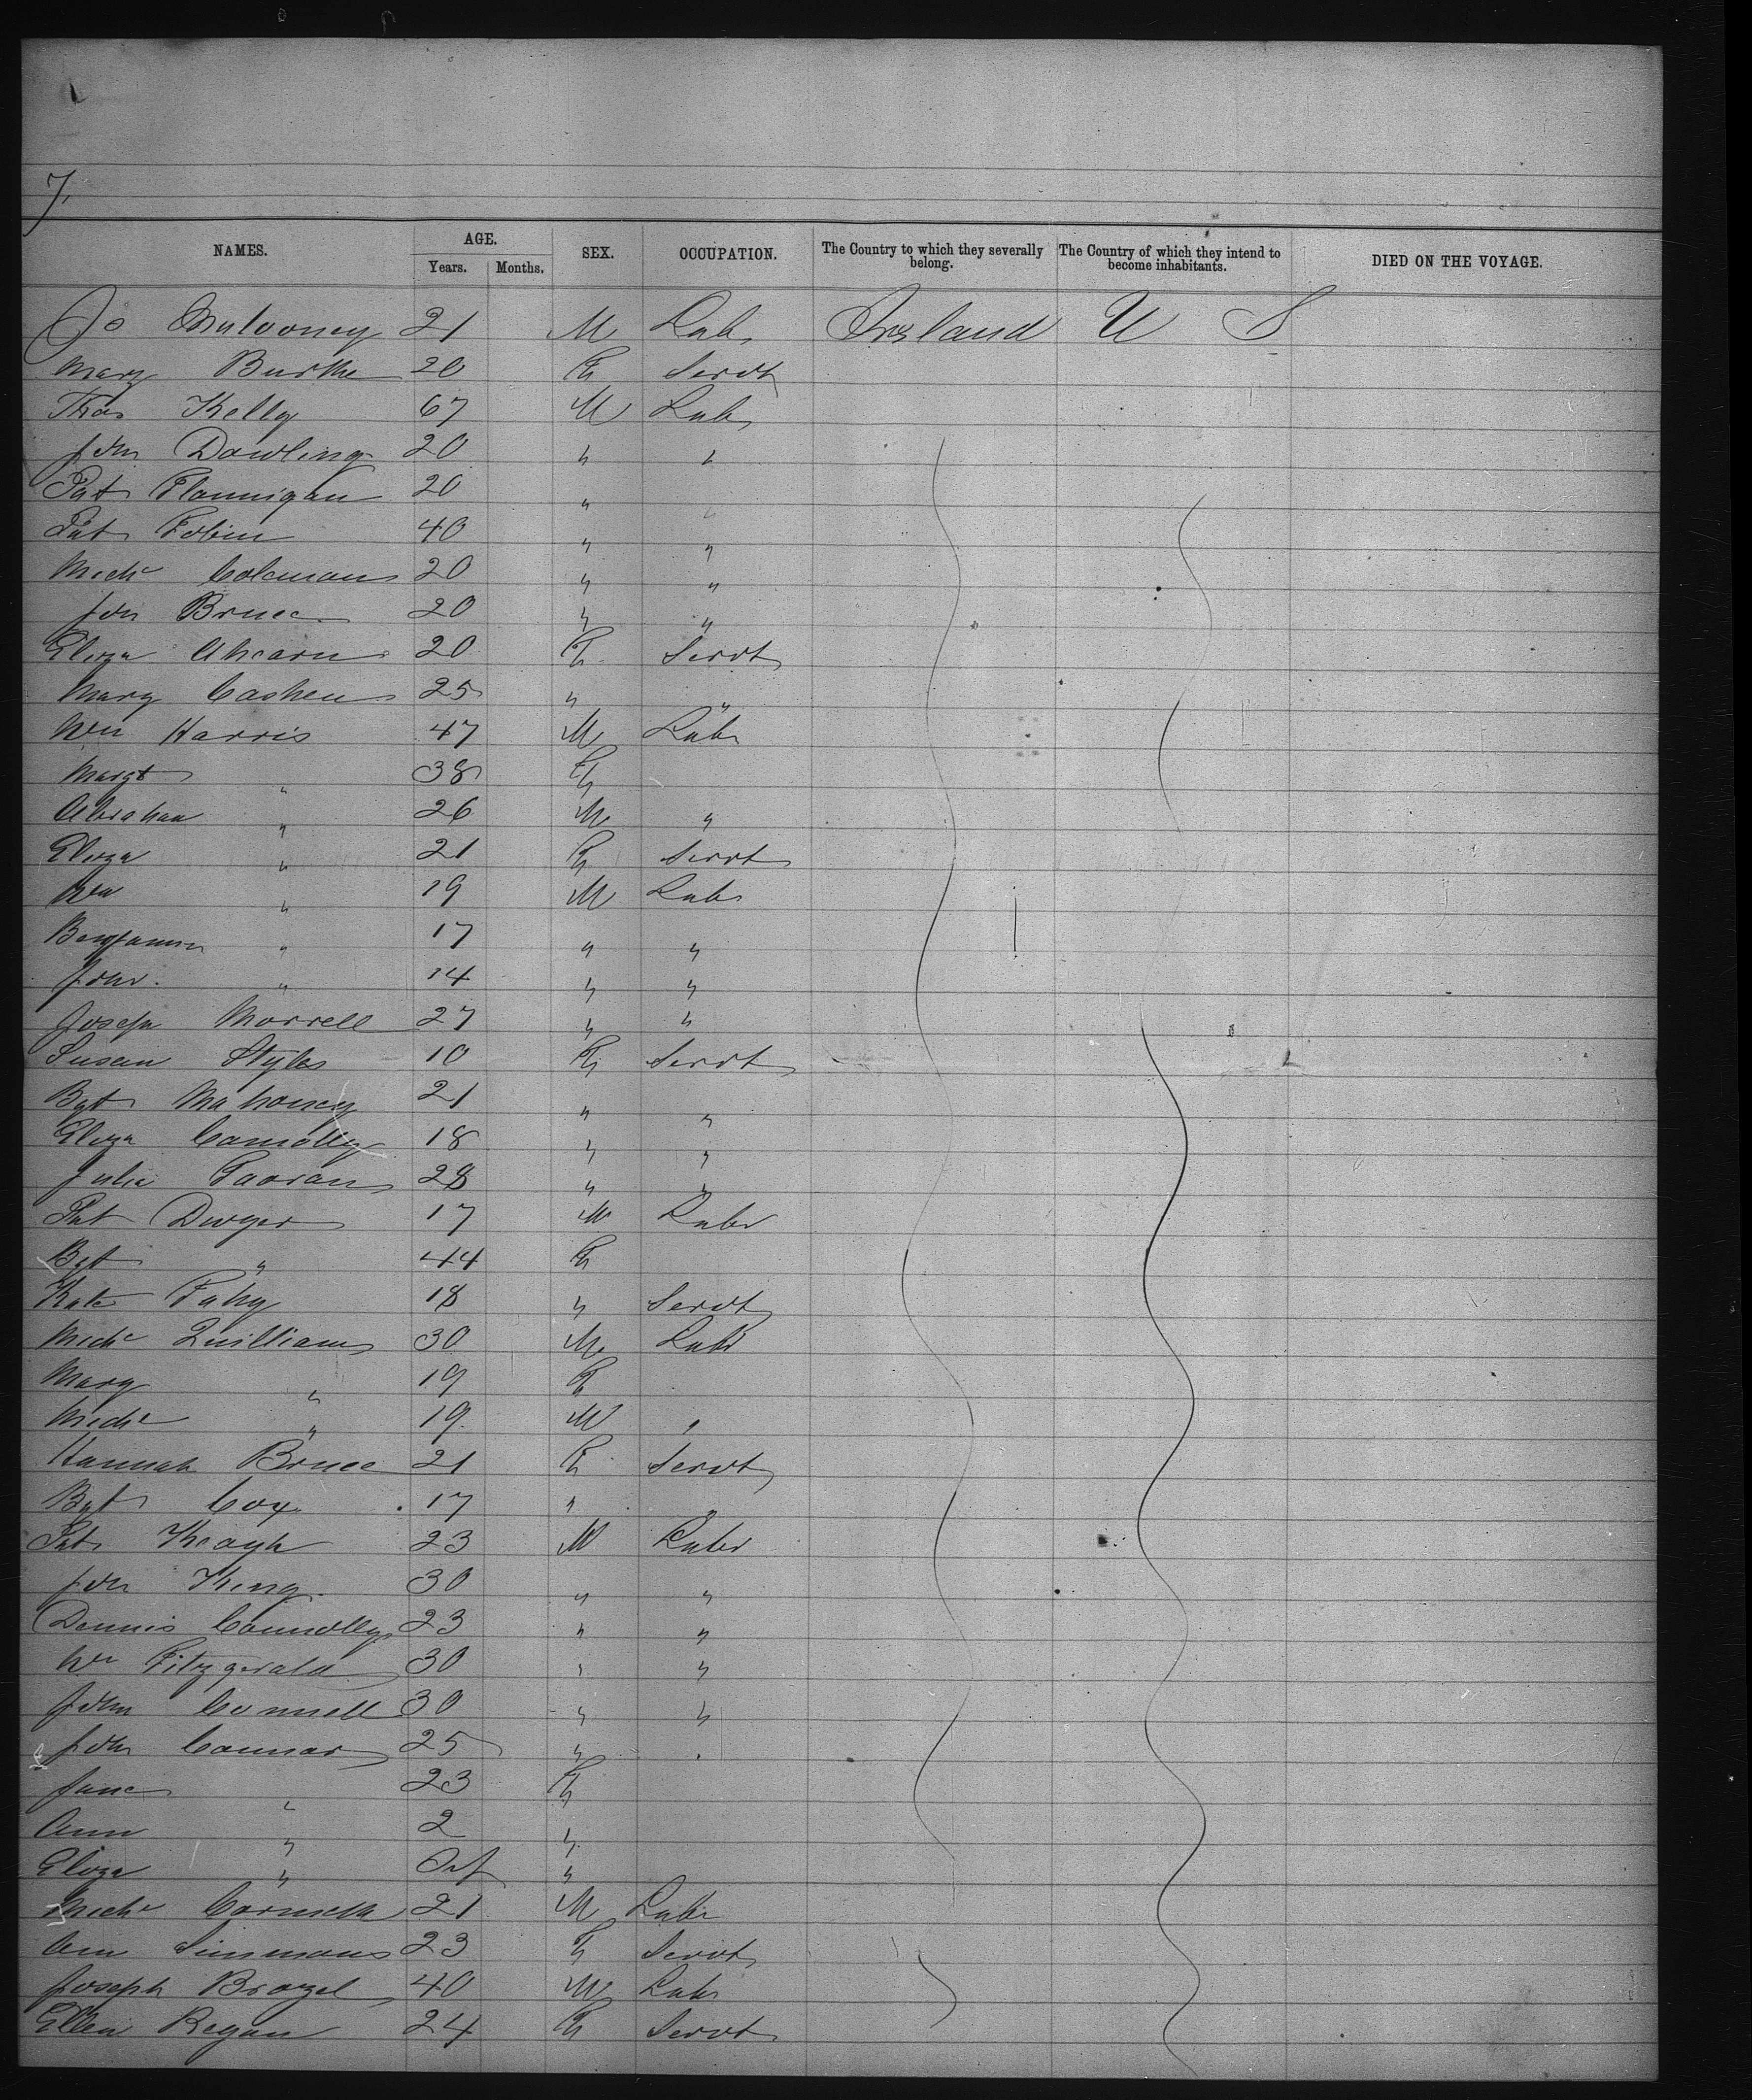 7,
NAMES. AGE. Years. Months. SEX. OCCUPATION. The Country to which they severally belong. The Country of which they intend to become inhabitants. DIED ON THE VOYAGE.
Jo Mulooney 21 M Labr Ireland U S
Mary Burke 20 F Servt
Thos Kelly 67 M Labr
John Dowling 20 " "
Pat Flannigan 20 " "
Pat Tobin 40 " "
Michl Coleman 20 " "
John Bruce 20 " "
Eliza Ahearn 20 F Servt
Mary Cashen 25 " "
Wm Harris 47 M Labr
Margt " 38 F
Abraham " 26 M "
Eliza " 21 F Servt
Wm " 19 M Labr
Benjamin " 17 " "
John " 14 " "
Joseph Morrell 27 " "
Susan Styles 10 F Servt
Bgt Mahoney 21 " "
Eliza Connolly 18 " "
Julia 28 " "
Pat Dwyer 17 M Labr
Bgt " 44 F
Kate Fahy 18 " Servt
Michl Quilliam 30 M Labr
Mary " 19 F
Michl " 19 M "
Hannah Bruce 21 F Servt
Bgt Cox 17 " "
Pat Keagh 23 M Labr
John King 30 " "
Dennis Connolly 23 " "
Wm Fitzgerald 30 " "
John Connell 30 " "
John Connar 25 " "
Jane " 23 F
Ann " 2 "
Eliza " Inf "
Michl 21 M Labr
Ann Simmons 23 F Servt
Joseph Brazel 40 M Labr
Ellen Regan 24 F Servt